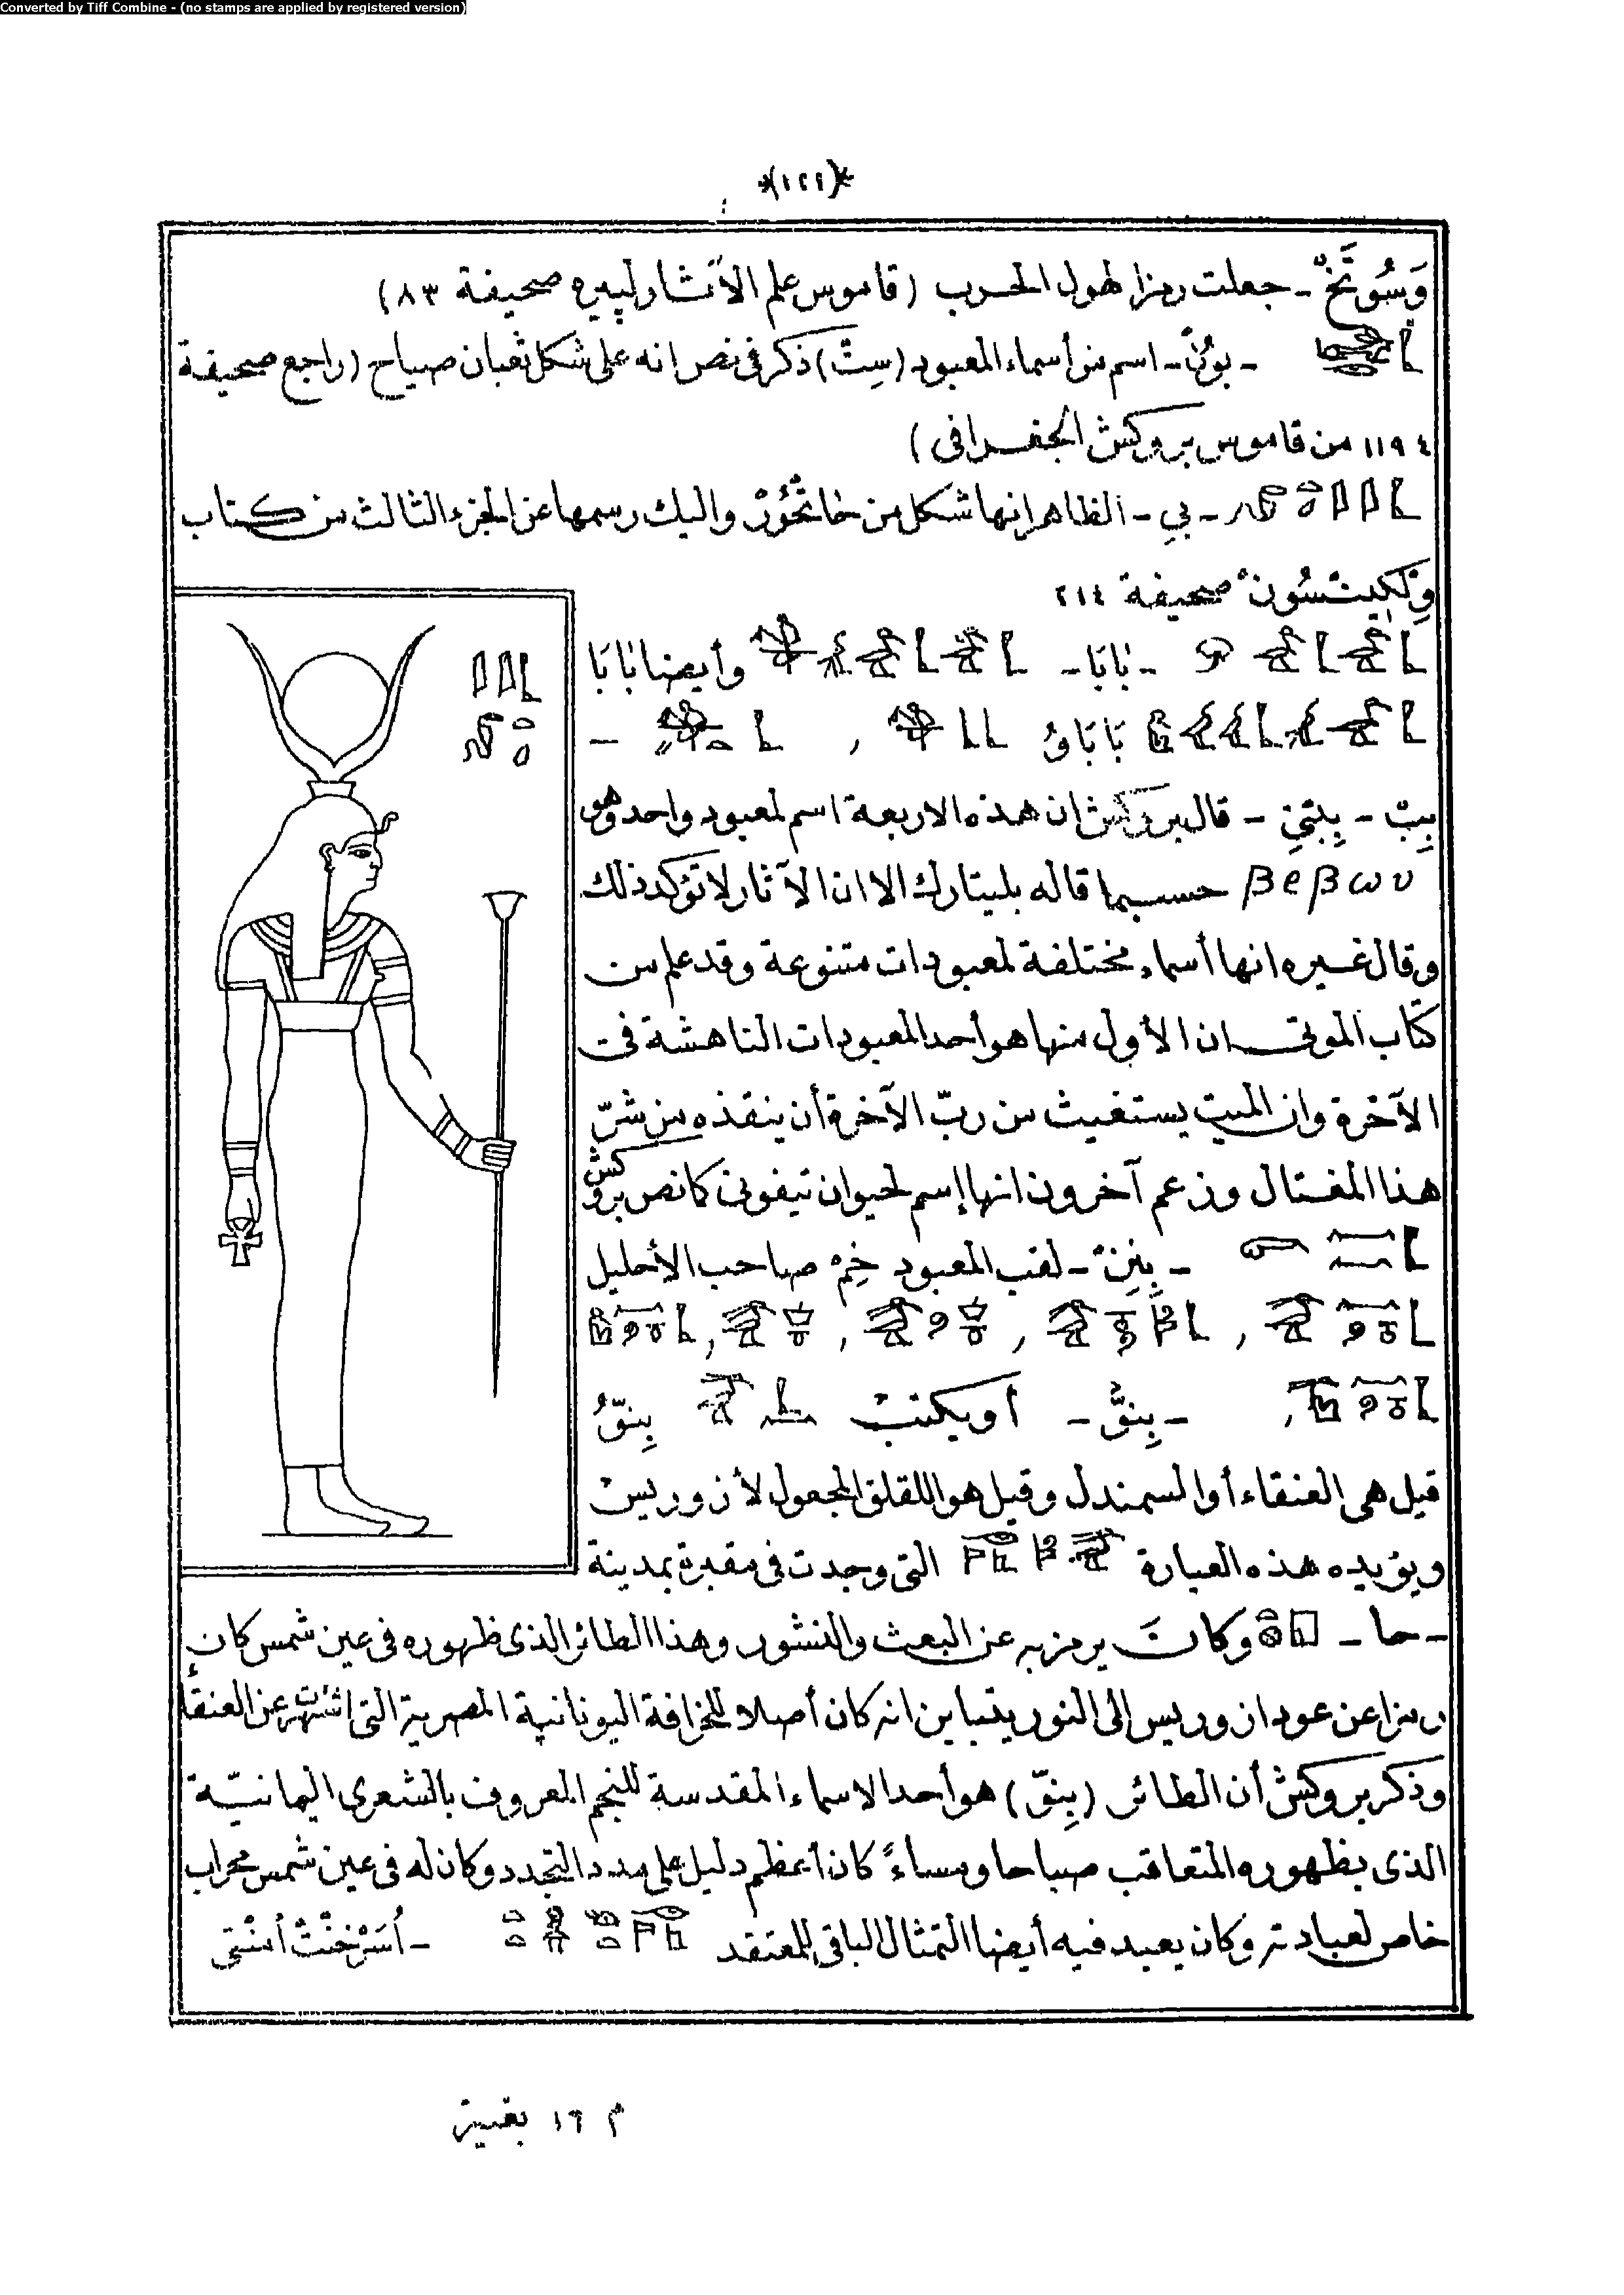 Converted by Tiff Combine - (no stamps are applied by registered version)
*(١٢١)*
وَسُوتَخْ - جعلت رمزا لهول الحرب (قاموس علم الآثار لپيره صحيفة ٨٣)
- اسم من أسماء المعبود (سِتْ) ذكر فى نص انه على شكل ثعبان صياح (راجع صحيفة
١١٩٤ من قاموس بروكش الجغرافى)
- بِي - الظاهر انها شكل من حاتحُور واليك رسمها عن الجزء الثالث من كتاب
صحيفة ٢١٤
- بَابَا - وأيضا بَابَا
بَابَاىُ , -
بِبْ - بِبْتِى - قال بروكش ان هذه الاربعة اسم لمعبود واحد وهو
βεβωυ حسبما قاله بليتارك الا ان الآثار لا تؤكد ذلك
وقال غيره انها أسماء مختلفة لمعبودات متنوعة وقد علم من
كتاب الموتى ان الأول منها هو أحد المعبودات الناهشة فى
الآخرة وان الميت يستغيث من ربّ الآخرة أن ينقذه من شرّ
هذا المغتال وزعم آخرون انها إسم لحيوان تيفونى كما نص بروكش
- بِنِنْ - لقب المعبود خِمْ صاحب الأحليل
, , , ,
, - بِنقُّ - أو يكتب بِنقُّ
قيل هى العنقاء أو السمندل وقيل هو اللقلق المجعول لأزوريس
ويؤيده هذه العبارة التى وجدت فى مقبرة بمدينة
- حا - وكانت يرمز به عن البعث والنشور وهذا الطائر الذى ظهوره فى عين شمس كان
رمزا عن عود ازوريس الى النور يتباين انه كان أصلا للخرافة اليونانية المصرية التى اشتهرت عن العنقاء
وذكر بروكش أن الطائر (بِنقّ) هو أحد الاسماء المقدسة للنجم المعروف بالشعرى اليمانيّة
الذى بظهوره المتعاقب صباحا ومساءً كان أعظم دليل على مدد التجدد وكان له فى عين شمس محراب
خاص لعبادته وكان يعبد فيه أيضا التمثال الباقى للمعتقد - أُسَرْخِنْتْ أمِنْتِى
م ١٦ بغية